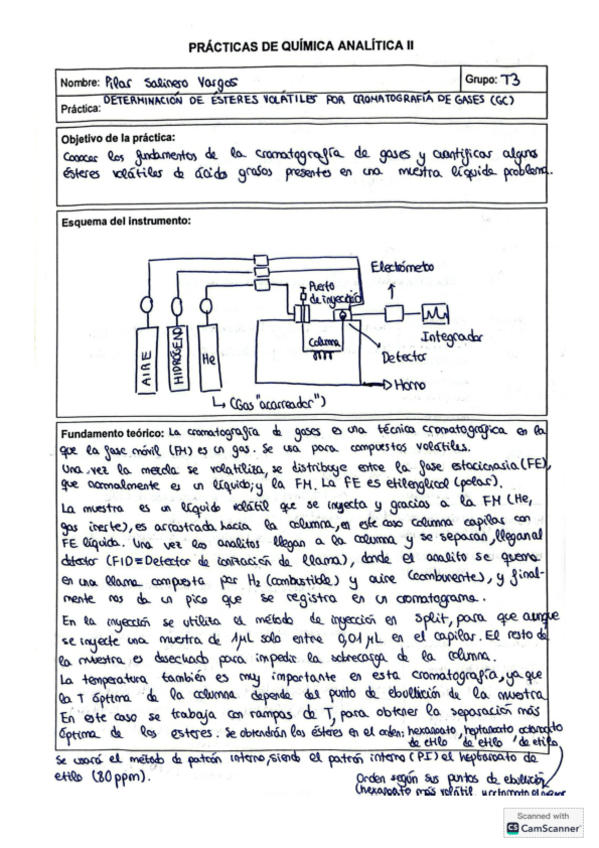 PRÁCTICAS DE QUÍMICA ANALÍTICA II
Nombre: Pilar Salinero Vargas
Grupo: T3
Práctica: DETERMINACIÓN DE ÉSTERES VOLÁTILES POR CROMATOGRAFÍA DE GASES (GC)
Objetivo de la práctica:
Conocer los fundamentos de la cromatografía de gases y cuantificar algunos
ésteres volátiles de ácido grasos presentes en una muestra líquida problema.
Esquema del instrumento:
Electrómetro
Puerto
de inyección
Columna
Integrador
Detector
Horno
AIRE
HIDRÓGENO
He
(Gas "acarreador")
Fundamento teórico: La cromatografía de gases es una técnica cromatográfica en la
que la fase móvil (FM) es un gas. Se usa para compuestos volátiles.
Una vez la mezcla se volatiliza, se distribuye entre la fase estacionaria (FE),
que normalmente es un líquido; y la FM. La FE es etilenglicol (polar).
La muestra es un líquido volátil que se inyecta y gracias a la FM (He,
gas inerte), es arrastrada hacia la columna, en este caso columna capilar con
FE líquida. Una vez los analitos llegan a la columna y se separan, llegan al
detector (FID = Detector de ionización de llama), donde el analito se quema
en una llama compuesta por H₂ (combustible) y aire (comburente), y final-
mente nos da un pico que se registra en un cromatograma.
En la inyección se utiliza el método de inyección en split, para que aunque
se inyecte una muestra de 1µL solo entre 0,01 µL en el capilar. El resto de
la muestra es desechado para impedir la sobrecarga de la columna.
La temperatura también es muy importante en esta cromatografía, ya que
la T óptima de la columna depende del punto de ebullición de la muestra
En este caso se trabaja con rampas de T, para obtener la separación más
óptima de los esteres. Se obtendrán los ésteres en el orden: hexanoato, heptanoato octanoato
de etilo de etilo de etilo
Se usará el método de patrón interno, siendo el patrón interno (PI) el heptanoato de
etilo (80 ppm).
Orden según sus puntos de ebullición
(hexanoato más volátil
Scanned with
CS CamScanner